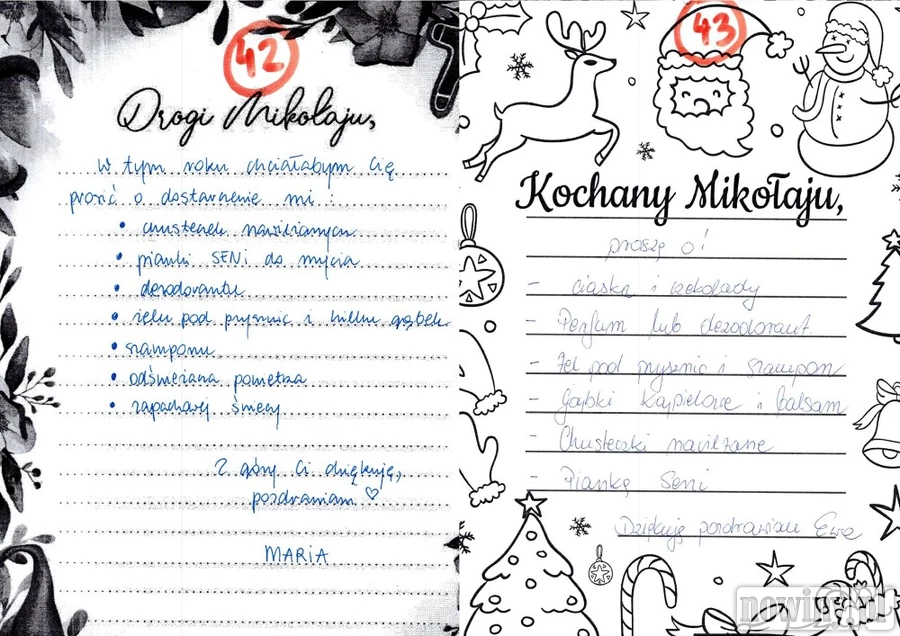 42
Drogi Mikołaju,
W tym roku chciałabym Cię
prosić o dostarczenie mi:
• chusteczek nawilżanych
• pianki SENI do mycia
• dezodorantu
• żelu pod prysznic i kilku gąbek
• szamponu
• odświeżacza powietrza
• zapachowej świecy
Z góry Ci dziękuję,
pozdrawiam ♡
MARIA
43
Kochany Mikołaju,
proszę o!
- ciastka i czekolady
- Perfum lub dezodorant
- Żel pod prysznic i szampon
- Gąbki Kąpielowe i balsam
- Chusteczki nawilżane
- Piankę Seni
Dziękuję pozdrawiam Ewa
nowiny.pl